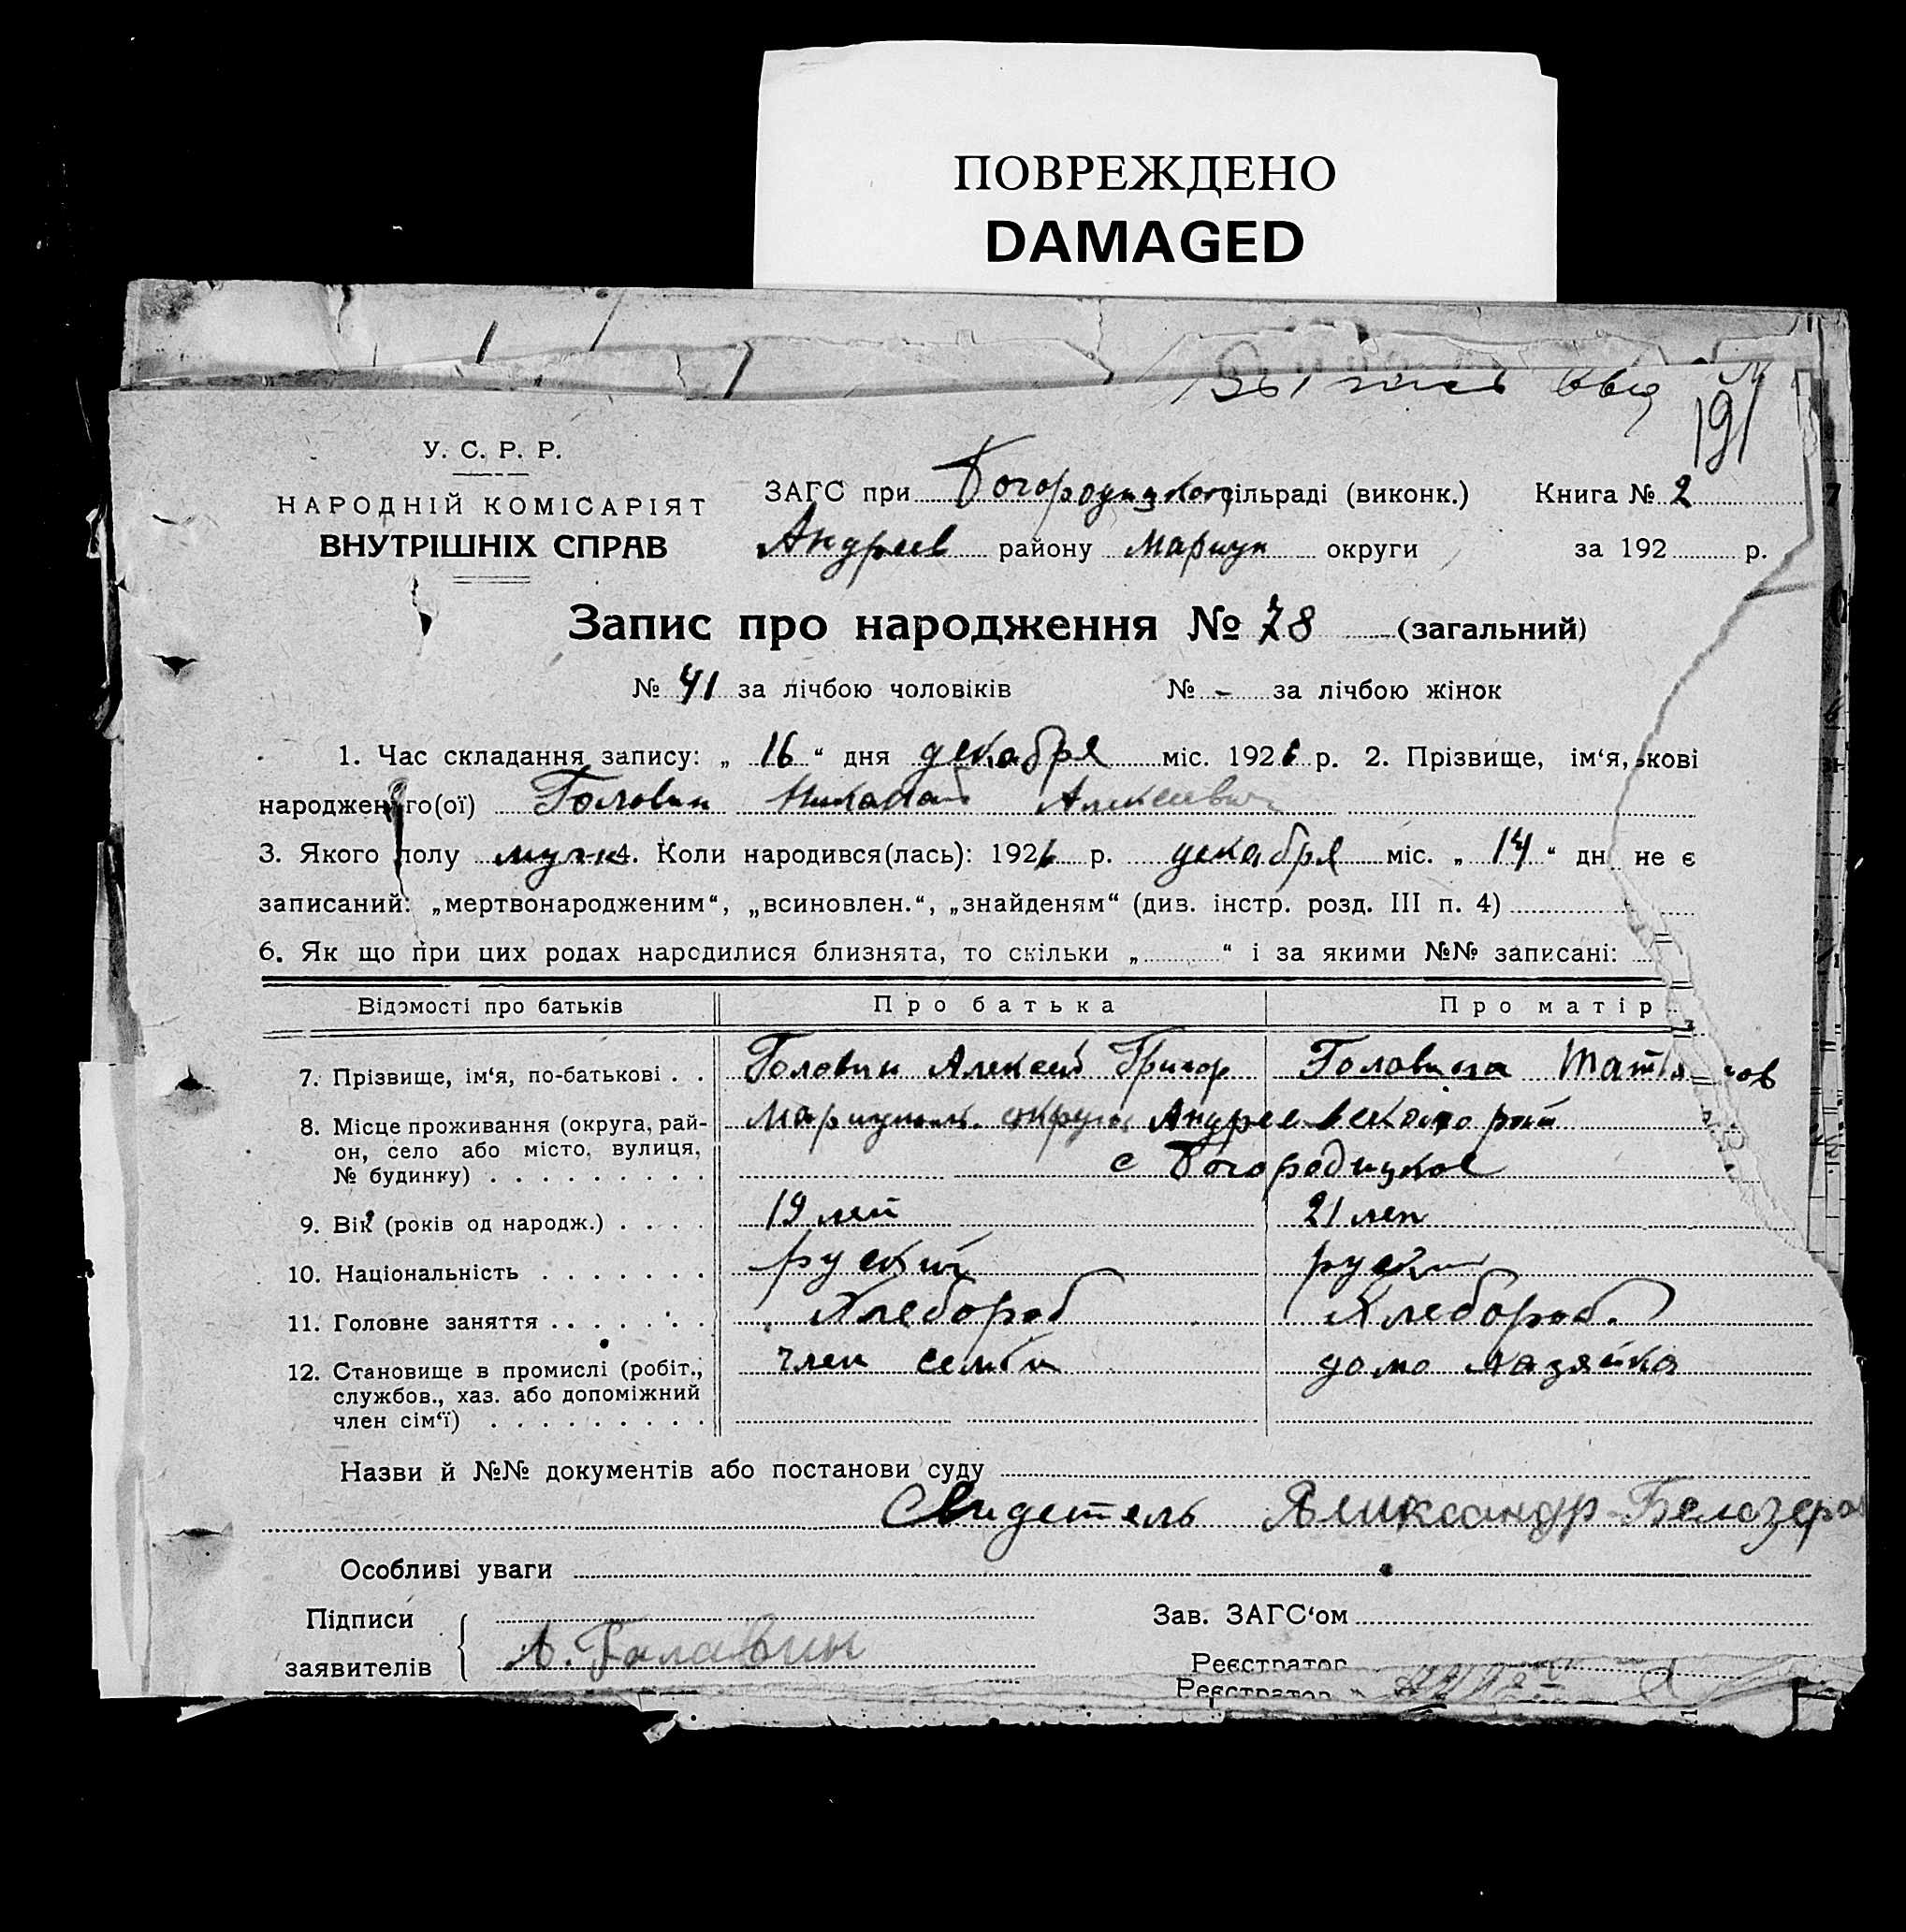 ПОВРЕЖДЕНО
DAMAGED
191
У. С. Р. Р.
НАРОДНІЙ КОМІСАРІЯТ
ВНУТРІШНІХ СПРАВ
ЗАГС при Богородицкой сільраді (виконк.) Книга № 2
Андреев району Мариуп округи за 192 р.
Запис про народження № 78 (загальний)
№ 41 за лічбою чоловіків № - за лічбою жінок
1. Час складання запису: „ 16 “ дня декабря міс. 1926 р. 2. Прізвище, ім‘я, кові
народженого(ої) Головин Николай Алексеевич
3. Якого полу муж 4. Коли народився(лась): 1926 р. декабря міс. „ 14 “ дн не є
записаний: „мертвонародженим“, „всиновлен.“, „знайденям“ (див. інстр. розд. III п. 4)
6. Як що при цих родах народилися близнята, то скільки „ “ і за якими №№ записані:
Відомості про батьків Про батька Про матір
7. Прізвище, ім‘я, по-батькові . . Головин Алексей Григор Головина Татья ов
8. Місце проживання (округа, рай- Мариуполь. округа Андреевского рай
он, село або місто, вулиця, с Богородицкое
№ будинку) . . . . . . . . .
9. Вік (років од народж.) . . . . 19 лет 21 лет
10. Національність . . . . . . . руский руская
11. Головне заняття . . . . . . . Хлебороб Хлебороб.
12. Становище в промислі (робіт., член семьи домо хазяйка
службов., хаз. або допоміжний
член сім‘ї) . . . . . . . . .
Назви й №№ документів або постанови суду
Свидетель Аликсандр Белозеров
Особливі уваги
Підписи Зав. ЗАГС‘ом
заявителів А. Галавин Реєстратор
Реєстратор